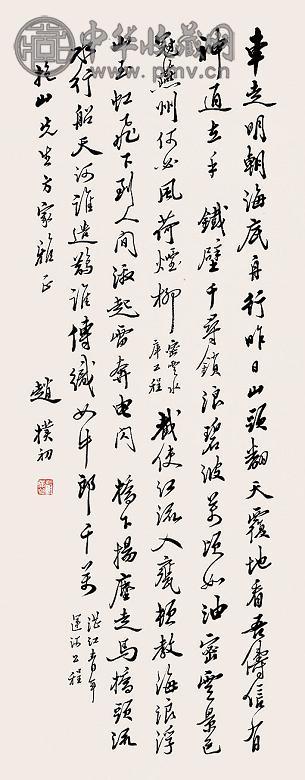 中华收藏网
車走明朝海底舟行昨日山頭翻天覆地看吾儔信有
神通在手 鐵壁千尋鎖浪碧波萬頃如油密雲景色
冠燕州何必風荷煙柳 密雲水庫工程 截使江流入甕頓教海浪浮
山玉虹飛下到人間激起雷奔電閃 橋下揚塵走馬橋頭流
水行船天河誰造鵲誰傳織女牛郎千萬 湛江青年運河工程
抱山先生方家雅正
趙樸初